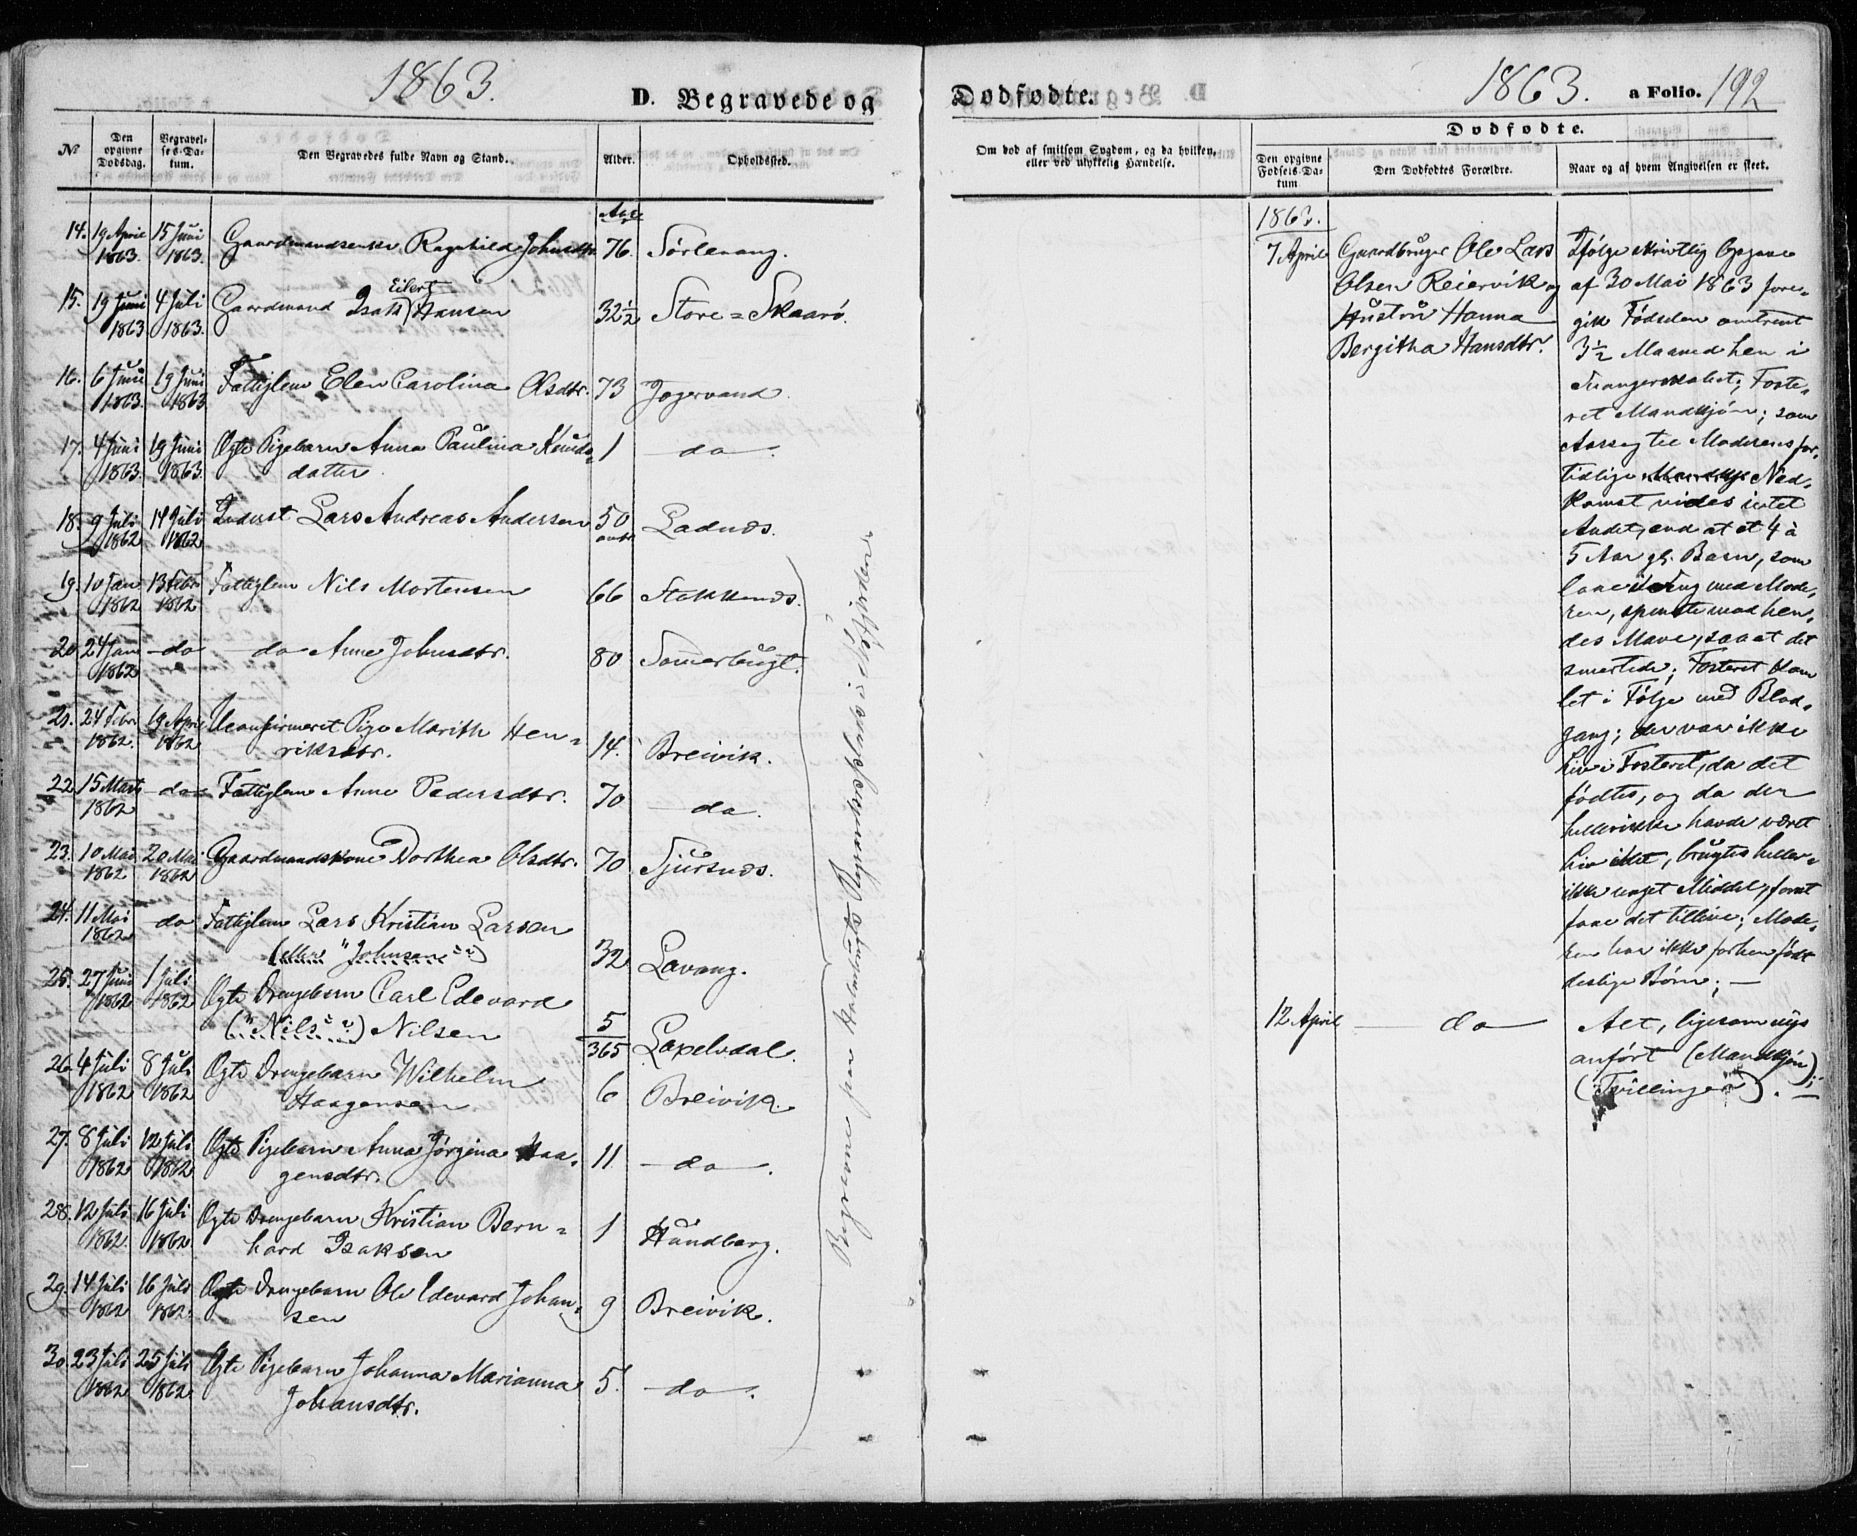 1863.
D. Begravede og
No
Den opgivne Dødsdag.
Begravelses-Datum.
Den Begravedes fulde Navn og Stand.
Alder.
Opholdssted.
14. 19 April 1863. 15 Juni 1863. Gaardmandsenke Ragnhilde Johnsdtr. Aar 76. Sørlenang.
15. 19 Juni 1863 4 Juli 1863. Gaardmand Isak Eilert Hansen 32½ Store=Skaarø.
16. 6 Juni 1863. 19 Juni 1863 Fattiglem Elen Carolina Olsdtr. 73 Jægervand.
17. 4 Juni 1863. 19 Juni 1863. Ægte Pigebarn Anna Paulina Knuds-
datter. 1 do.
18. 9 Juli 1862 14 Juli 1862 Inderst Lars Andreas Andersen 50 Ladnæs.
19. 10 Jan 1862 13 Febr 1862 Fattiglem Nils Mortensen 66 Stakkenæs.
20 24 Jan 1862 do do Anne Johnsdtr. 80 Somerbugt.
21. 24 Febr 1862. 19 April 1862 Uconfirmeret Pige Marith Hen=
riksdtr. 14. Breivik.
22. 15 Marts 1862 do Fattiglem Anne Pedersdtr. 70 do.
23. 10 Mai 1862 20 Mai 1862 Gaardmandskone Dorthea Olsdtr. 70 Sjursnæs.
24. 11 Mai 1862 do Fattiglem Lars Kristian Larsen
(eller "Johnsen") 32 Lavang.
25. 27 Juni 1862 1 Juli 1862 Ægte Drengebarn Carl Edevard
("Nils") Nilsen 5/365 Lakselvdal.
26. 4 Juli 1862 8 Juli 1862 Ægte Drengebarn Wilhelm
Haagensen 6 Breivik.
27. 8 Juli 1862 12 Juli 1862 Ægte Pigebarn Anna Jørgina Haa-
gensdtr. 11 do.
28. 12 Juli 1862. 16 Juli 1862 Ægte Drengebarn Kristian Bern=
hard Isaksen 1 Hundberg.
29. 14 Juli 1862 16 Juli 1862. Ægte Drengebarn Ole Edevard Johan-
sen 9 Breivik.
30. 23 Juli 1862 25 Juli 1862 Ægte Pigebarn Johanna Marianna
Johansdtr. 5. do.
Begravne paa
i Ulfsfjorden
Dødfødte.
1863. a Folio. 192
Om død af smitsom Sygdom, og da hvilken,
eller ved ulykkelig Hændelse.
Dødfødte.
Den opgivne Fødsels-Datum
Den Dødfødtes Forældre.
Naar og af hvem Angivelsen er skeet.
1863.
7 April
Gaardbruger Ole Lars
Olsen Reiervik og
Hustru Hanna
Bergitha Hansdtr.
Ifølge skriftlig Opgave
af 30 Mai 1863 fore-
gik Fødselen omtrent
3½ Maaned hen i
Svangerskabet; Foste-
ret Mandkjøn; som
Aarsag til Moderens for-
tidlige Ned-
komst vides intet
Andet, end at et 4 à
5 Aar gl. Barn, som
laae i Seng med Mode-
ren, spente mod hen-
des Mave, saa at det
smertede; Fosteret kom
let i Følge med Blod-
gang; der var ikke
Liv i Fosteret, da det
fødtes, og da der
heller ikke havde været
Liv i det, brugtes heller-
ikke noget Middel, for at
faae det tillive; Mode-
ren har ikke forhen født
deslige Børn; —
12 April
do
Alt, ligesom nys
anført (Mandkjøn)
(Tvillinger).